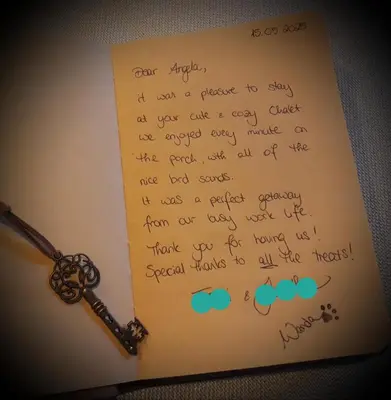 15.09.2025
Dear Angela,
it was a pleasure to stay
at your cute & cozy Chalet
we enjoyed every minute on
the porch, with all of the
nice bird sounds.
It was a perfect getaway
from our busy work life.
Thank you for having us!
Special thanks to all the treats!
&